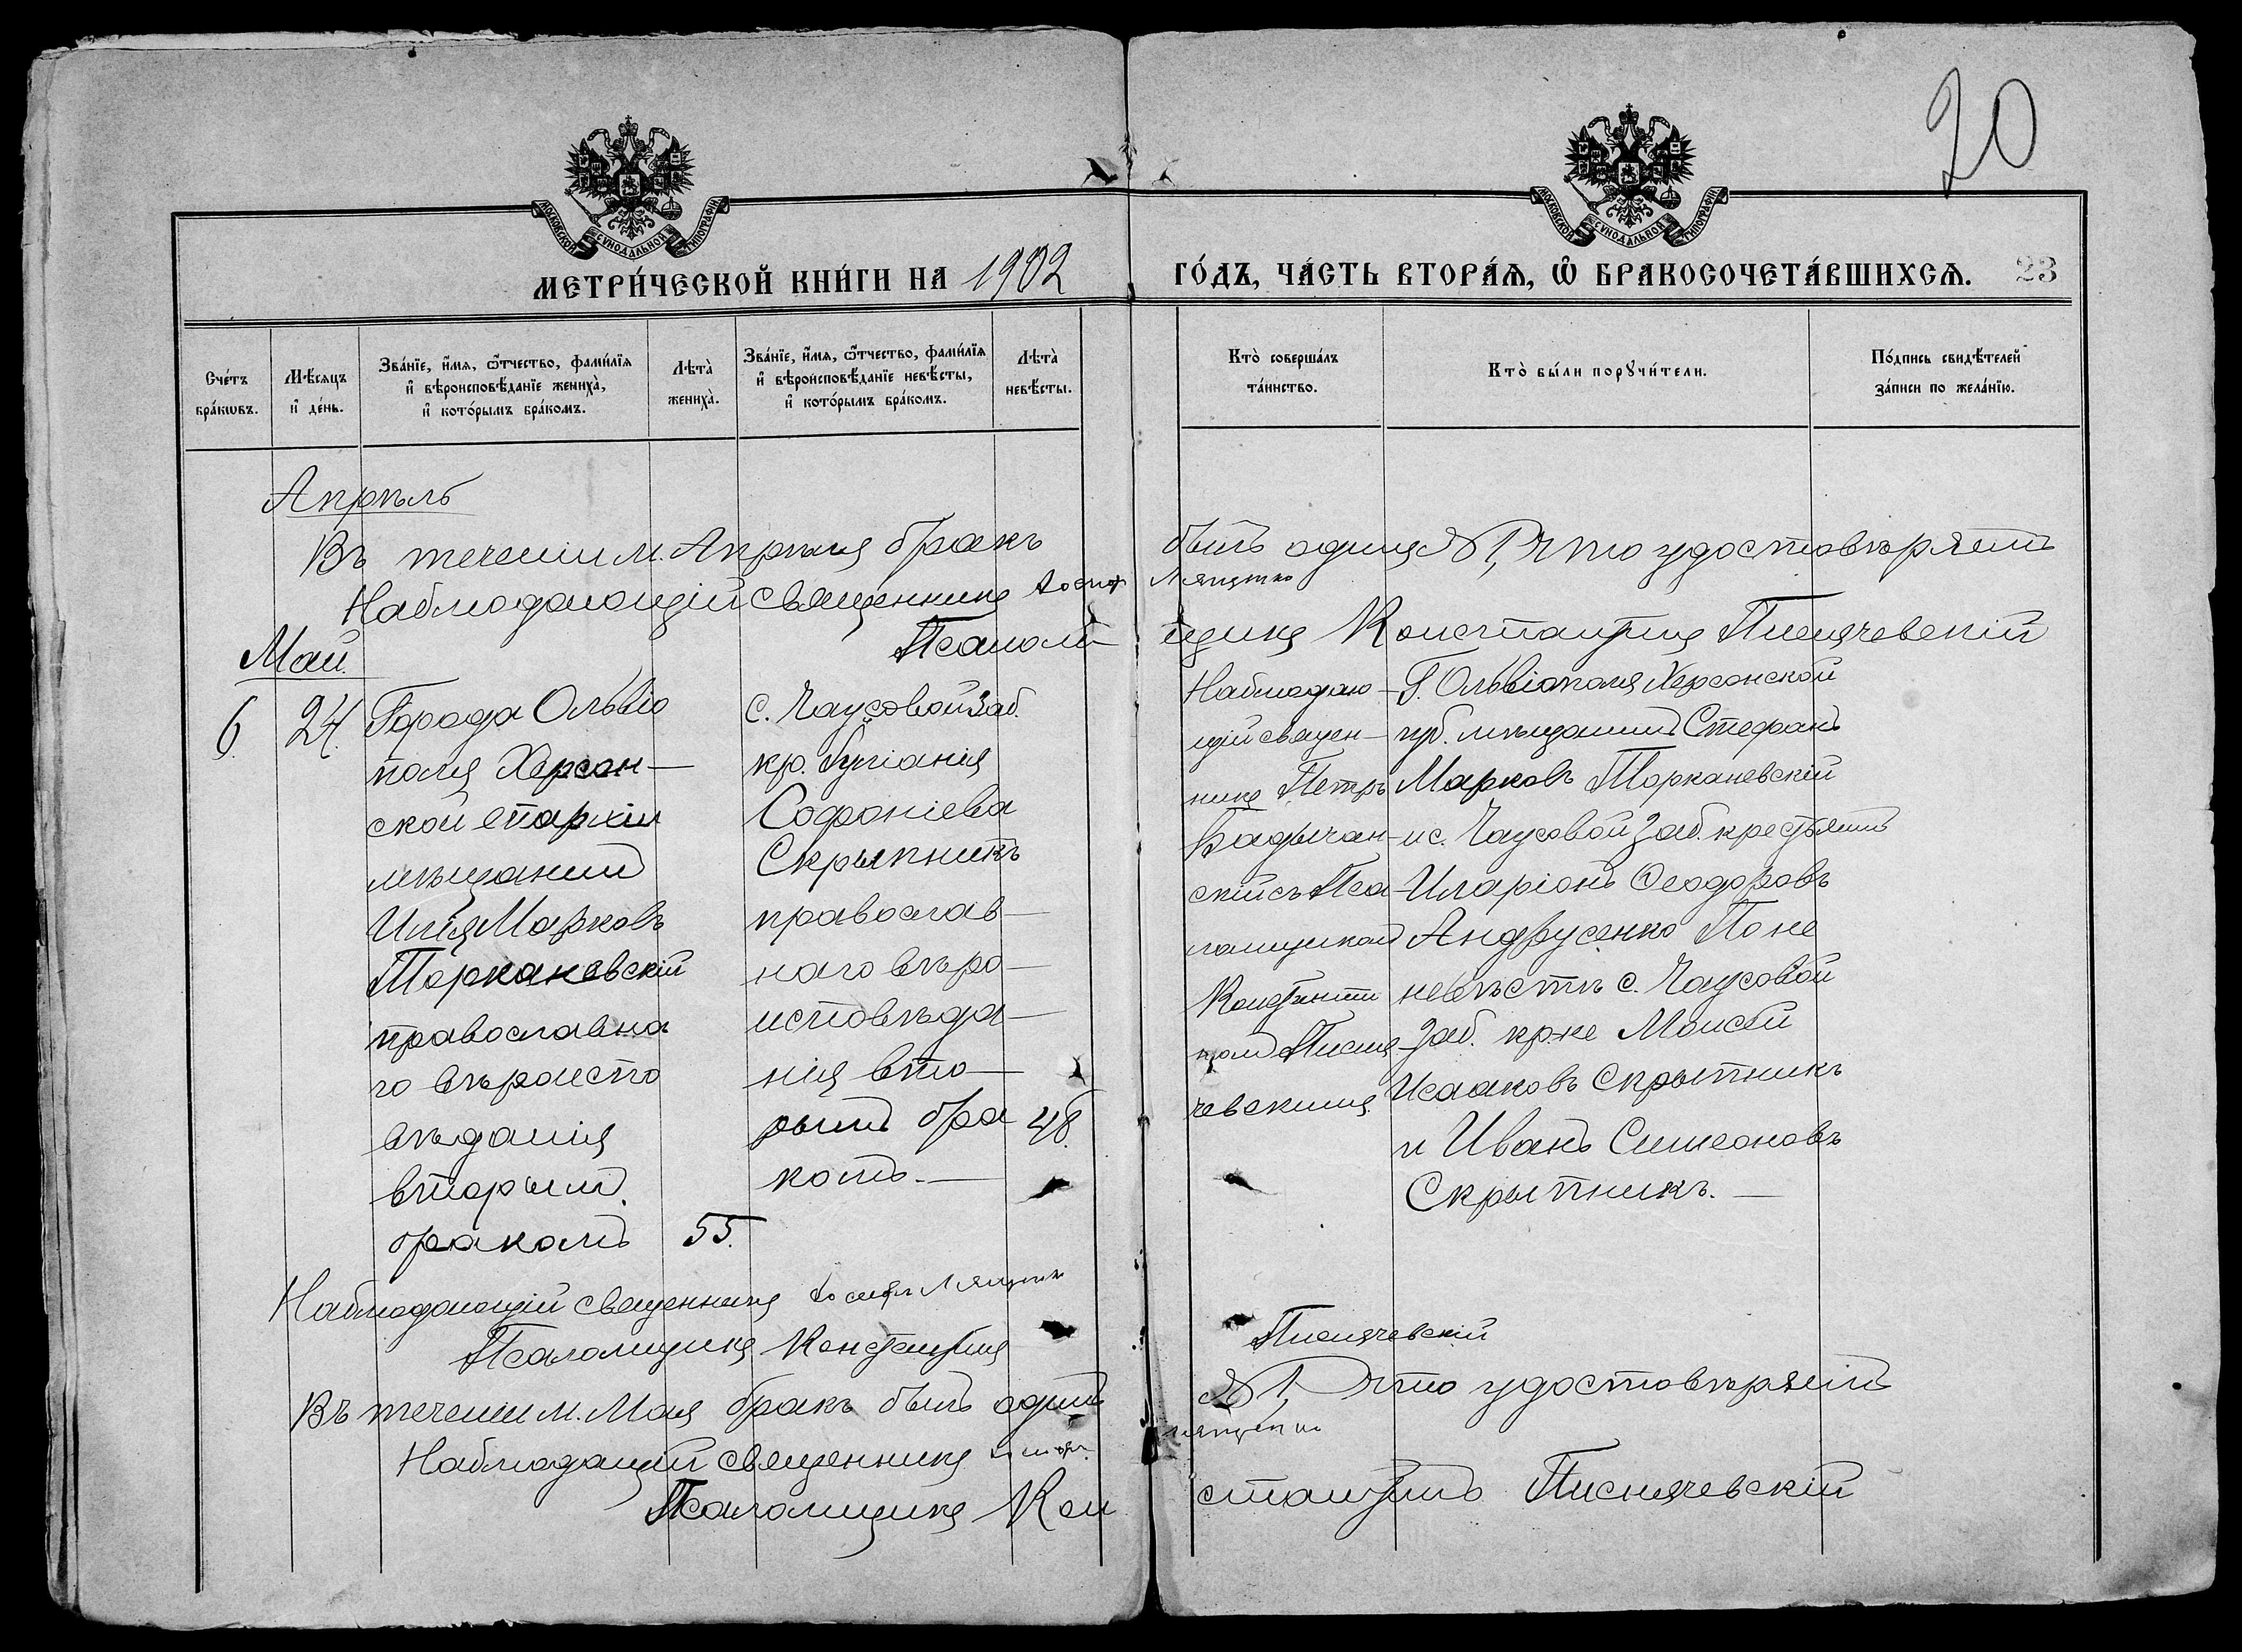 20
МОСКОВСКОЙ СУНОДАЛЬНОЙ ТИПОГРАФІИ
МОСКОВСКОЙ СУНОДАЛЬНОЙ ТИПОГРАФІИ
МЕТРИ́ЧЕСКОЙ КНИ́ГИ НА 1902
ГО́ДЪ, ЧА́СТЬ ВТОРА́Ѧ, Ѽ БРАКОСОЧЕТА́ВШИХСѦ. 23
Сче́тъ
бра́кѡвъ.
Мѣ́сяцъ
и҆ де́нь.
Зва́нїе, и҆́мя, ѻ҆́тчество, фами́лїя
и҆ вѣроисповѣ́данїе жениха̀,
и҆ кото́рымъ бра́комъ.
Лѣта̀
жениха̀.
Зва́нїе, и҆́мя, ѻ҆́тчество, фами́лїя
и҆ вѣроисповѣ́данїе невѣ́сты,
и҆ кото́рымъ бра́комъ.
Лѣта̀
невѣ́сты.
Кто̀ соверша́лъ
та́инство.
Кто̀ бы́ли порꙋчи́тели.
По́дпись свидѣ́телей
за́писи по жела́нїю.
Апрѣль
Въ теченіи м. Апрѣля бракъ
былъ одинъ № 1, что удостовѣряетъ
Наблюдающій священникъ
Псалом-
щикъ Константинъ Писнячевскій
Май.
6.
24.
Города Ольвіо
поля Херсон-
ской епархіи
мѣщанинъ
Илія Марковъ
Торкановскій
православна
го вѣроиспо
вѣданія
вторымъ
бракомъ
55.
с. Чаусовой 2 аб.
кр. Іуліанія
Софоніева
Скрыпникъ
православ-
наго вѣро-
исповѣда-
нія вто-
рымъ бра
комъ.-
48.
Наблюдаю-
щій священ-
никъ Петръ
скій съ Пса-
ломщикомъ
Константи
номъ Писня-
чевскимъ.
Г. Ольвіополя Херсонской
губ. мѣщанинъ Стефанъ
Марковъ Торкановскій
и с. Чаусовой 2 аб. крестьянинъ
Иларіонъ Ѳеодоровъ
Андрусенко По не
невѣстѣ с. Чаусовой
2 аб. кр-не Моисей
Исааковъ Скрыпникъ
и Иванъ Симеоновъ
Скрыпникъ.-
Наблюдающій священникъ
Псаломщикъ Константинъ
Писнячевскій
Въ теченіи м. Мая бракъ былъ одинъ
№ 1, что удостовѣряетъ
Наблюдащій священникъ
Псаломщикъ Кон
стантинъ Писнячевскій